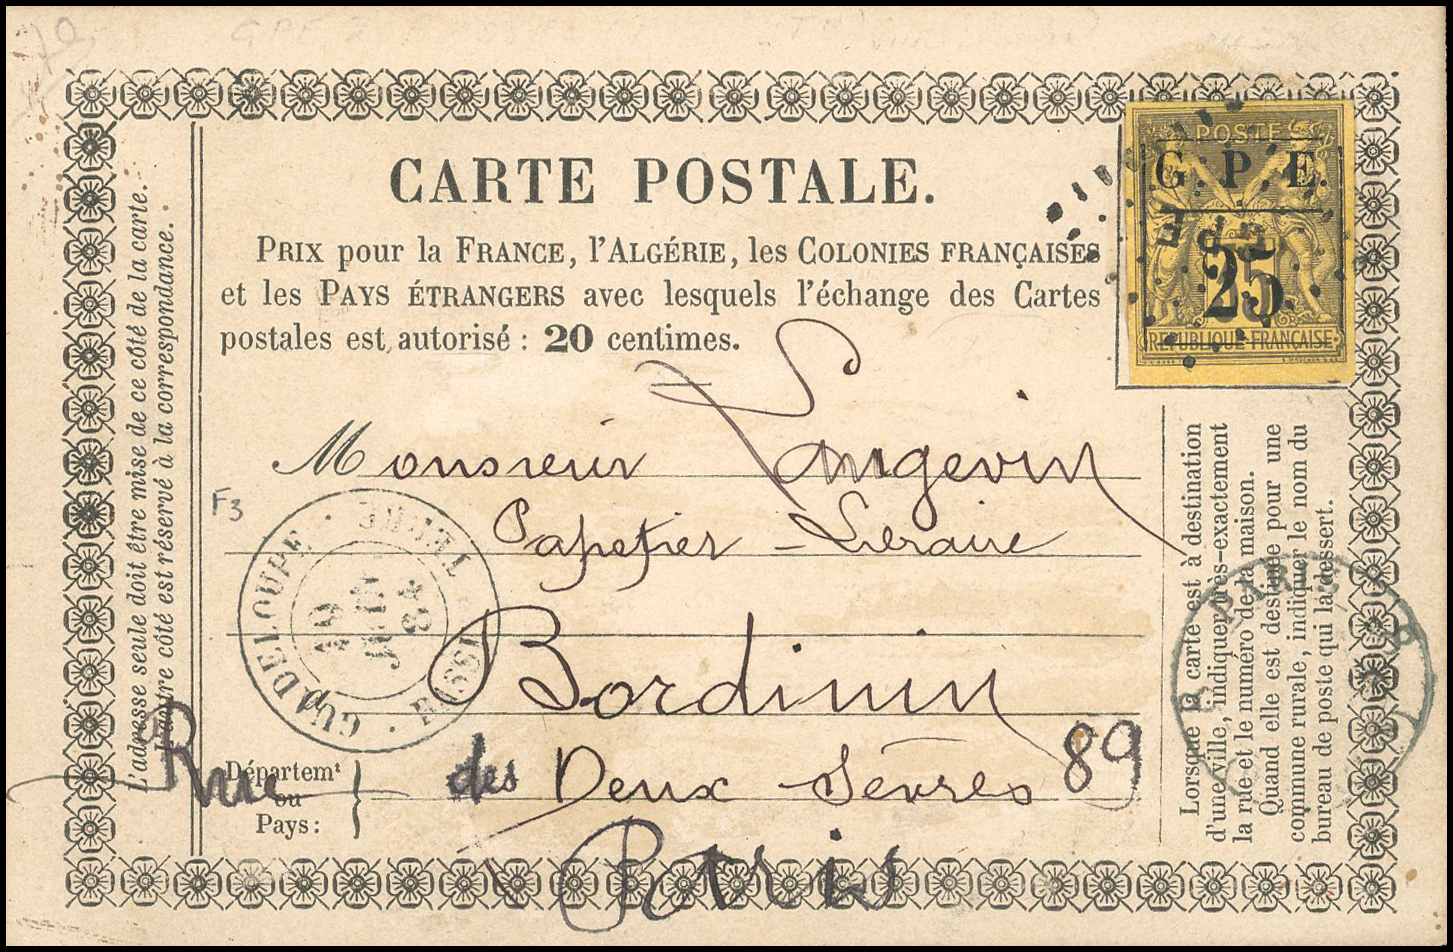 CARTE POSTALE.
PRIX pour la FRANCE, l'ALGÉRIE, les COLONIES FRANÇAISES
et les PAYS ÉTRANGERS avec lesquels l'échange des Cartes
postales est autorisé : 20 centimes.
POSTE
G. P. E.
25
RÉPUBLIQUE FRANÇAISE
L'adresse seule doit être mise de ce côté de la carte.
L'autre côté est réservé à la correspondance.
Monsieur Langevin
F3
Papetier - Libraire
GUADELOUPE
BASSE TERRE
19
84
Bordinin
Rue des Deux Sèvres 89
Départemt
ou
Pays :
Paris
Lorsque la carte est à destination
d'une ville, indiquer très-exactement
la rue et le numéro de la maison.
Quand elle est destinée pour une
commune rurale, indiquer le nom du
bureau de poste qui la dessert.
PARIS